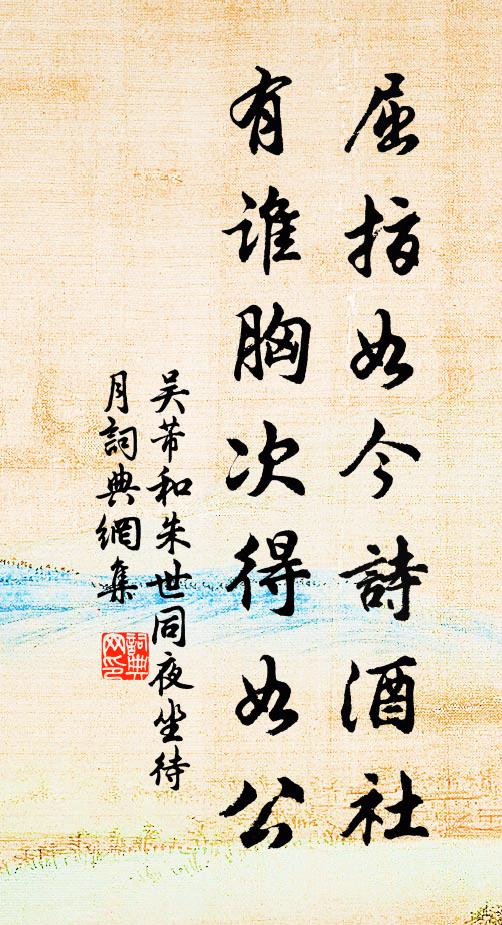 屈指如今詩酒社
有誰胸次得如公
吴芾和朱世同夜坐待
月詞典網集
詞典
网印